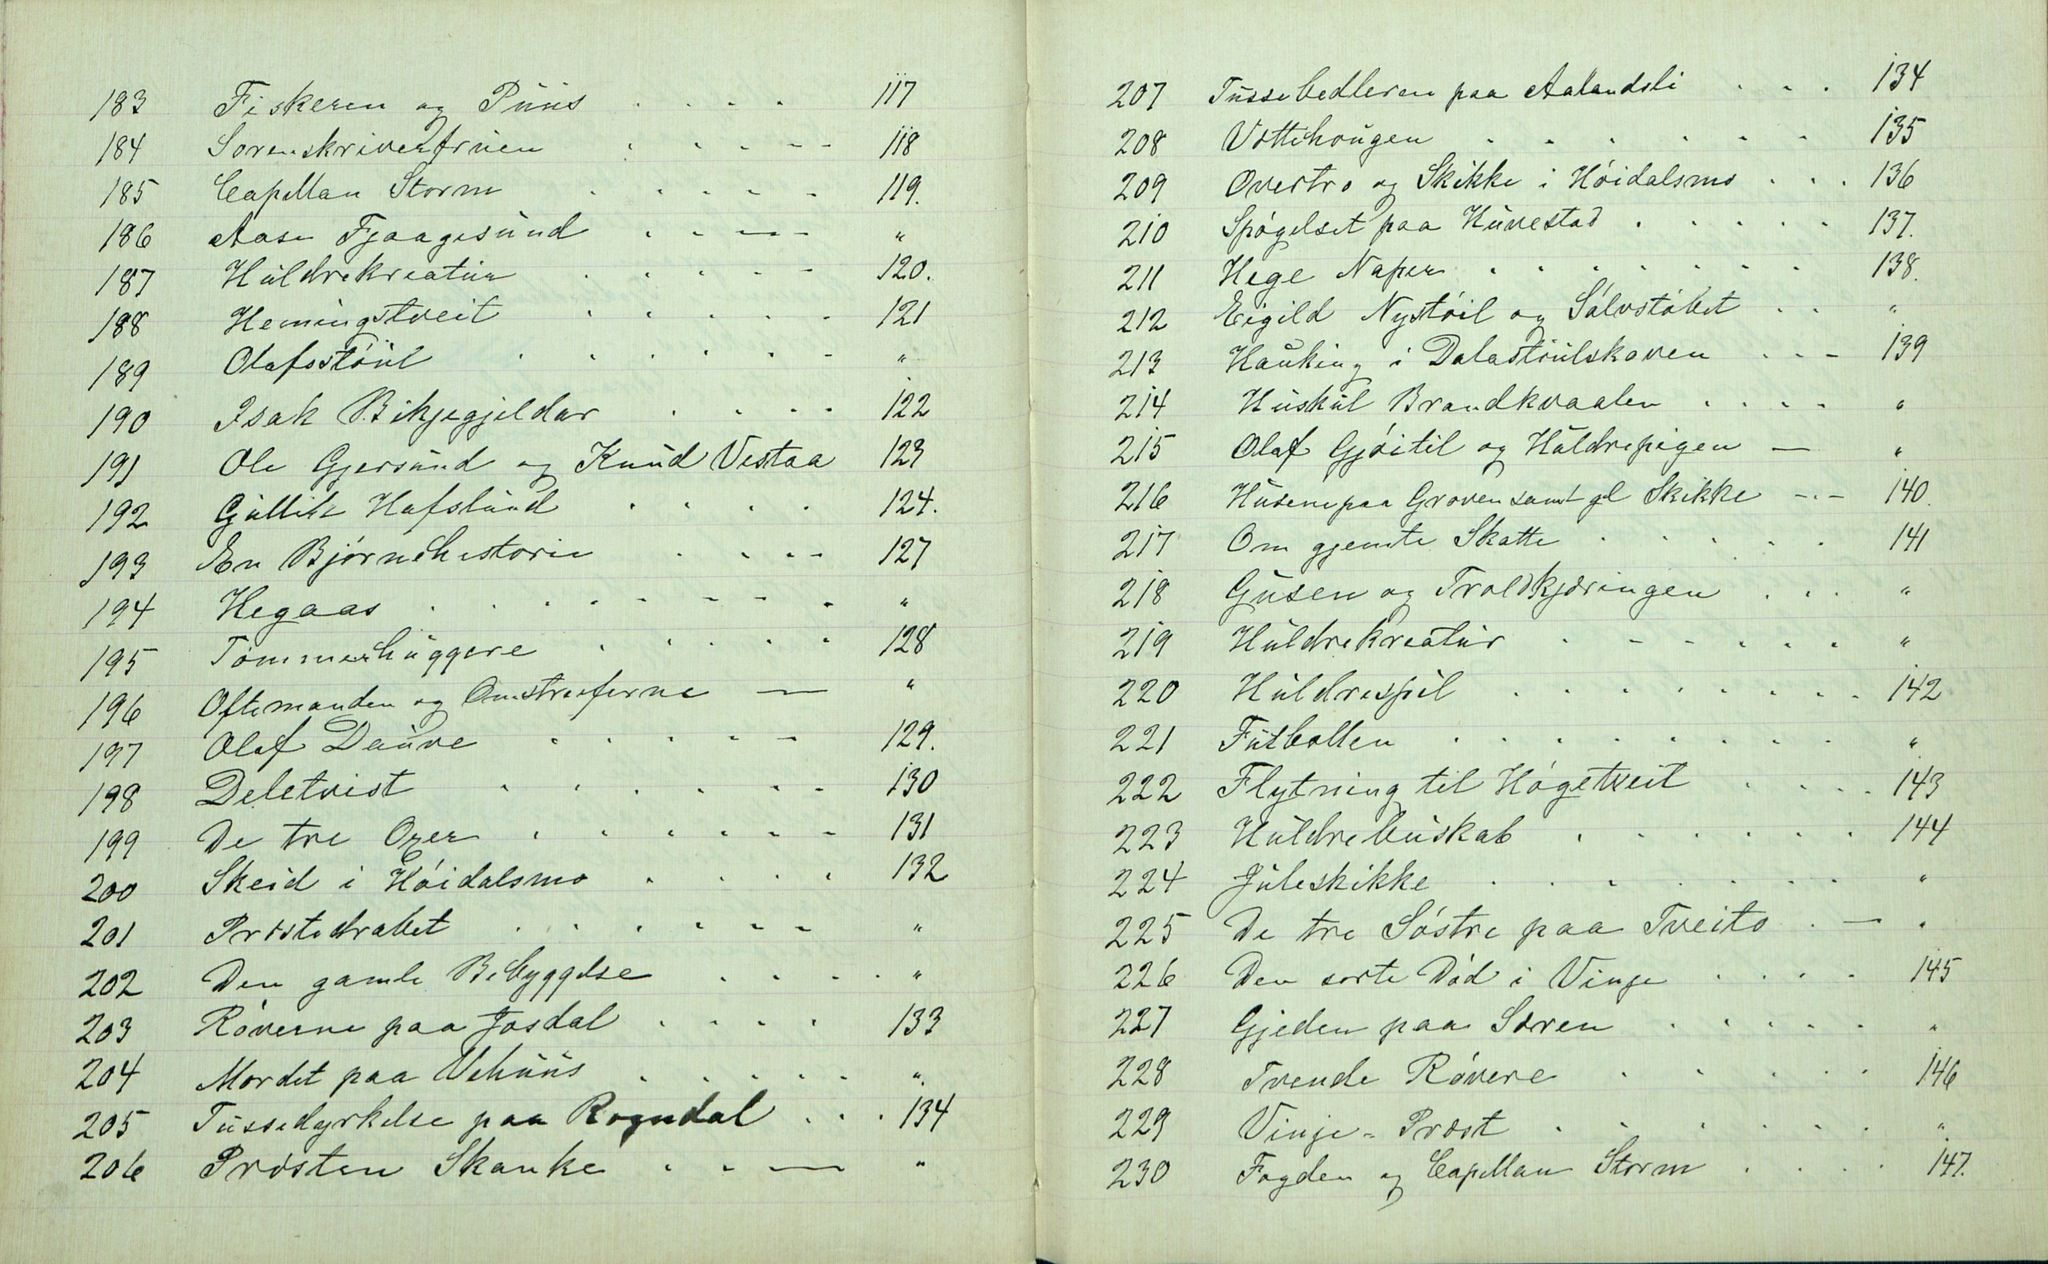 183 Fiskeren og Puus . . . . 117
184 Sorenskriverfruen . . . . . 118
185 Capellan Storm . . . . . 119.
186 Aase Fjaagesund . . . . "
187 Huldrekreatur . . . . . 120.
188 Hemingstveit . . . . . 121
189 Olafsstöül . . . . . . "
190 Isak Bikjegjeldar . . . . 122
191 Ole Gjersund og Knud Vestaa 123
192 Gullik Hafslund . . . . 124.
193 En Bjørnehistorie . . . . 127
194 Hegaas . . . . . . . "
195 Tømmerhuggere . . . . . 128
196 Oftemanden og Omstreiferne — "
197 Olaf Dauve . . . . . 129.
198 Deletvist . . . . . . 130
199 De tre Oxer . . . . . . 131
200 Skeid i Høidalsmo . . . . 132
201 Præstedrabet . . . . . . "
202 Den gamle Bebyggelse . . . . "
203 Røverne paa Josdal . . . . 133
204 Mordet paa Vehuus . . . . . "
205 Tussedyrkelse paa Rogndal . . . 134
206 Præsten Skanke . . . — "
207 Tussebedleren paa Aalandsli . . . 134
208 Vottehougen . . . . . . 135
209 Overtro og Skikke i Høidalsmo . . . 136
210 Spøgelset paa Huvestad . . . . . 137.
211 Hege Naper . . . . . . . 138.
212 Eigild Nystøil og Sølvstøbet . . "
213 Hauking i Dalastöülskoven . . . 139
214 Huskul Brandkvaalen . . . . "
215 Olaf Gjøitil og Huldrepigen — "
216 Husene paa Groven samt gl Skikke - . - 140.
217 Om gjemte Skatte . . . . . 141
218 Gusen og Troldkjæringen . . . "
219 Huldrekreatur . . . . . . "
220 Huldrespil . . . . . . . . 142
221 Futbollen . . . . . . . . "
222 Flytning til Høgetveit . . . . 143
223 Huldrebuskab . . . . . . 144
224 Juleskikke . . . . . . . "
225 De tre Søstre paa Tveito . — "
226 Den sorte Død i Vinje . . . . 145
227 Gjeden paa Særen . . . . . "
228 Tvende Røvere . . . . . . 146
229 Vinje-Præst . . . . . . . "
230 Fogden og Capellan Storm . . . . 147.